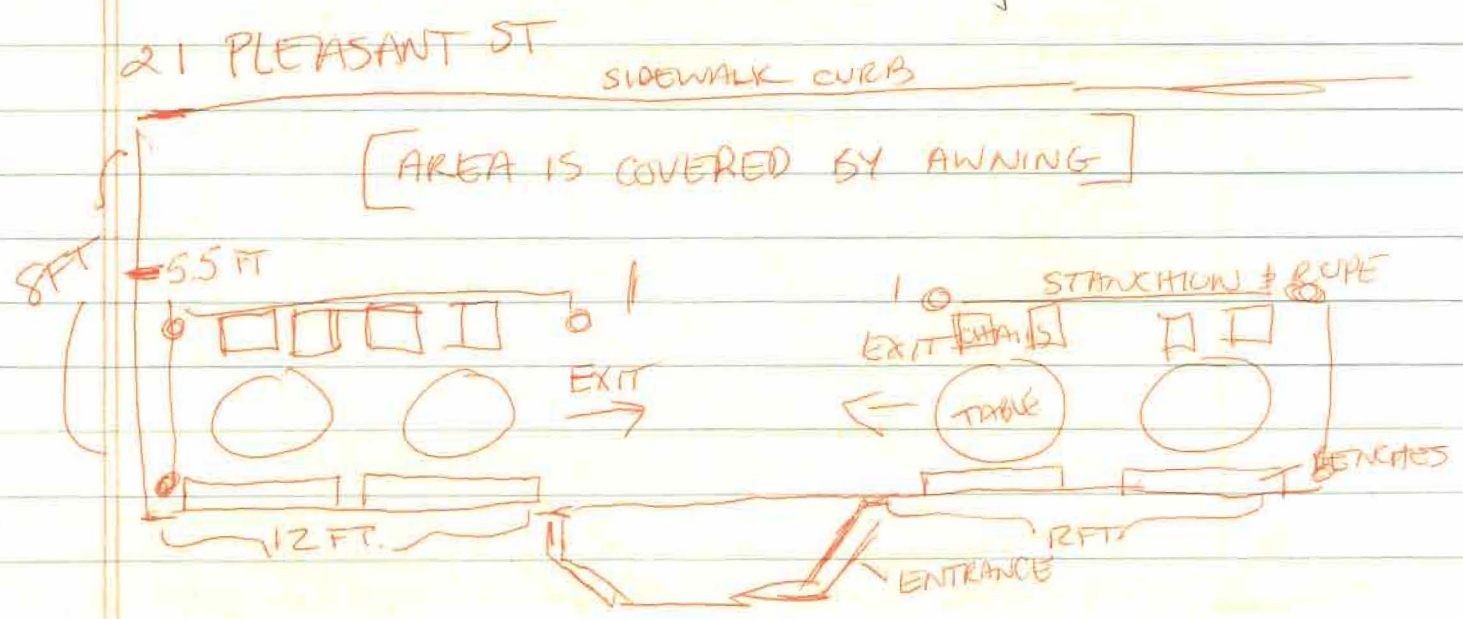 21 PLEASANT ST
SIDEWALK CURB
[AREA IS COVERED BY AWNING]
8FT
5.5 FT
STANCHION & ROPE
EXIT
CHAIRS
EXIT
TABLE
BENCHES
12 FT.
12 FT.
ENTRANCE